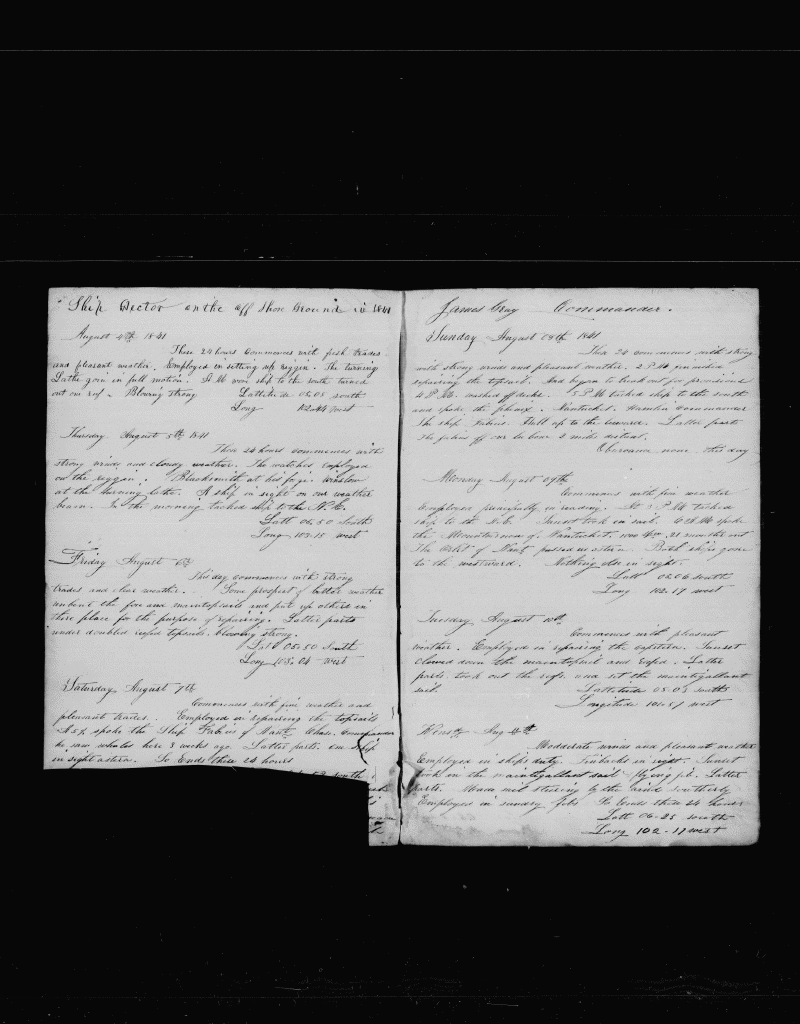 Ship Hector on the off Shore Ground in 1841
August 4th 1841
These 24 hours Commences with fresh trades
and pleasant weather. Employed in setting up riggin. The turning
Lathe goin in full motion. At M wore ship to the south turned
out one reef. Blowing strong Lattitude 05.08 south
Long 102.44 west
Thursday August 5th 1841
These 24 hours commences with
strong winds and cloudy weather. The watches employed
on the riggin. Blacksmith at his forge. Winslow
at the turning lathe. A ship in sight on our weather
beam. In the morning tacked ship to the N.E.
Latt 06.50 South
Long 103.15 west
Friday August 6th
This day commences with strong
trades and clear weather. Some prospect of better weather
unbent the fore and maintopsails and put up others in
there place for the purpose of repairing. Latter parts
under doubled reefed topsails. blowing strong.
Latt 05.50 South
Long 103.04 West
Saturday August 7th
Commences with fine weather and
pleasant trades. Employed in repairing the topsails
At 5 spoke the Ship Fabius of Nant. Chase Commander
he saw whales here 3 weeks ago. Latter parts one ship
in sight astern. So Ends these 24 hours
south
James Gray Commander.
Sunday August 08th 1841
These 24 commences with strong
with strong winds and pleasant weather. 2 P M finished
repairing the topsail. And began to break out for provisions
4 P.M. washed off decks. 5 P M tacked ship to the south
and spoke the phenix. Nantucket. Commander
The ship Fabius. Kell up to the leward. Latter parts
the fabius off our lee bow 3 miles distant.
Oberance none this day
Monday August 09th
Commences with fine weather
Employed principally in reading. At 3 P M tacked
ship to the S.E. Sunset took in sail. 6 P.M. spoke
the of Nantucket, 21 months out
The of Nant passed us astern. Both ships gone
to the westward. Nothing else in sight.
Latt 06.06 south
Long 102.17 west
Tuesday August 10th
Commences with pleasant
weather. Employed in repairing the Sunset
clewed down the maintopsail and reefed. Latter
parts. took out the reefs. and set the maintopgallant
sail Lattitude 05.03 south
Longitude 101.57 west
Aug 11th
Modderate winds and pleasant weather
Employed in ships duty. Finbacks in sight. Sunset
took in the maintopgallant sail flying jib. Latter
parts. Made sail steering by the wind southerly
Employed in sunday jobs So Ends these 24 hours
Latt 06.25 south
Long 102.17 west